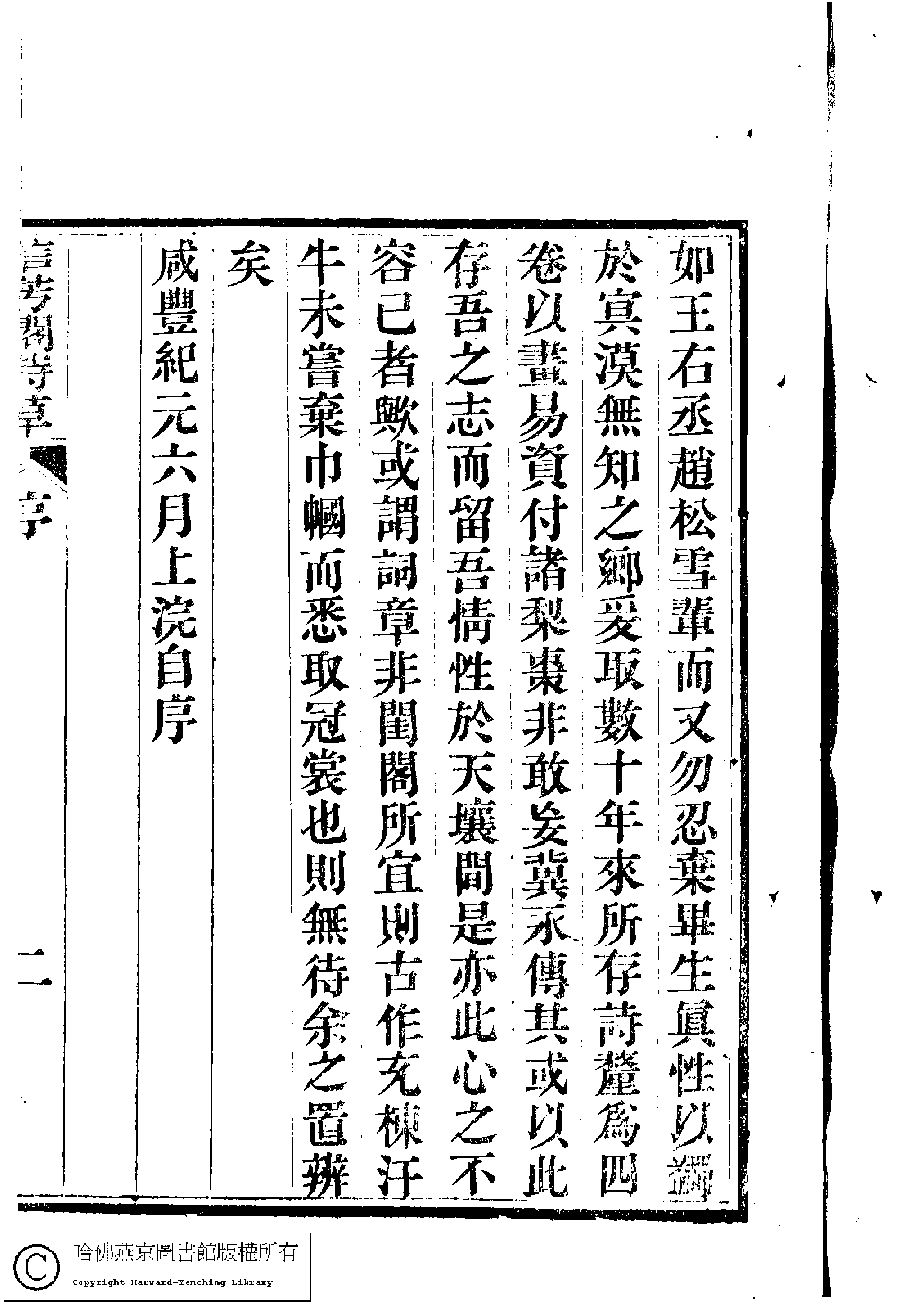 如王右丞趙松雪輩而又勿忍棄畢生眞性以蠲
於㝠漠無知之鄉爰取數十年來所存詩釐為四
卷以畫易資付諸梨棗非敢妄冀永傳其或以此
存吾之志而留吾情性於天壤間是亦此心之不
容已者歟或謂詞章非閨閣所宜則古作充棟汗
牛未嘗棄巾幗而悉取冠裳也則無待余之置辨
矣
咸豐紀元六月上浣自序
信芳閣詩草 序 二
哈佛燕京圖書館版權所有
Copyright Harvard-Yenching Library